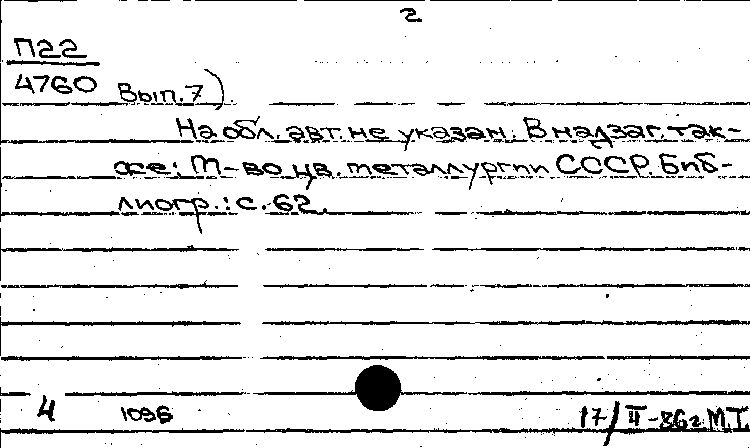 2
П22
4760 Вып. 7).
На обл. авт. не указан. В надзаг. так-
же: М-во цв. металлургии СССР. Биб-
лиогр.: с. 62.
4 1096 17/II-86г. М.Т